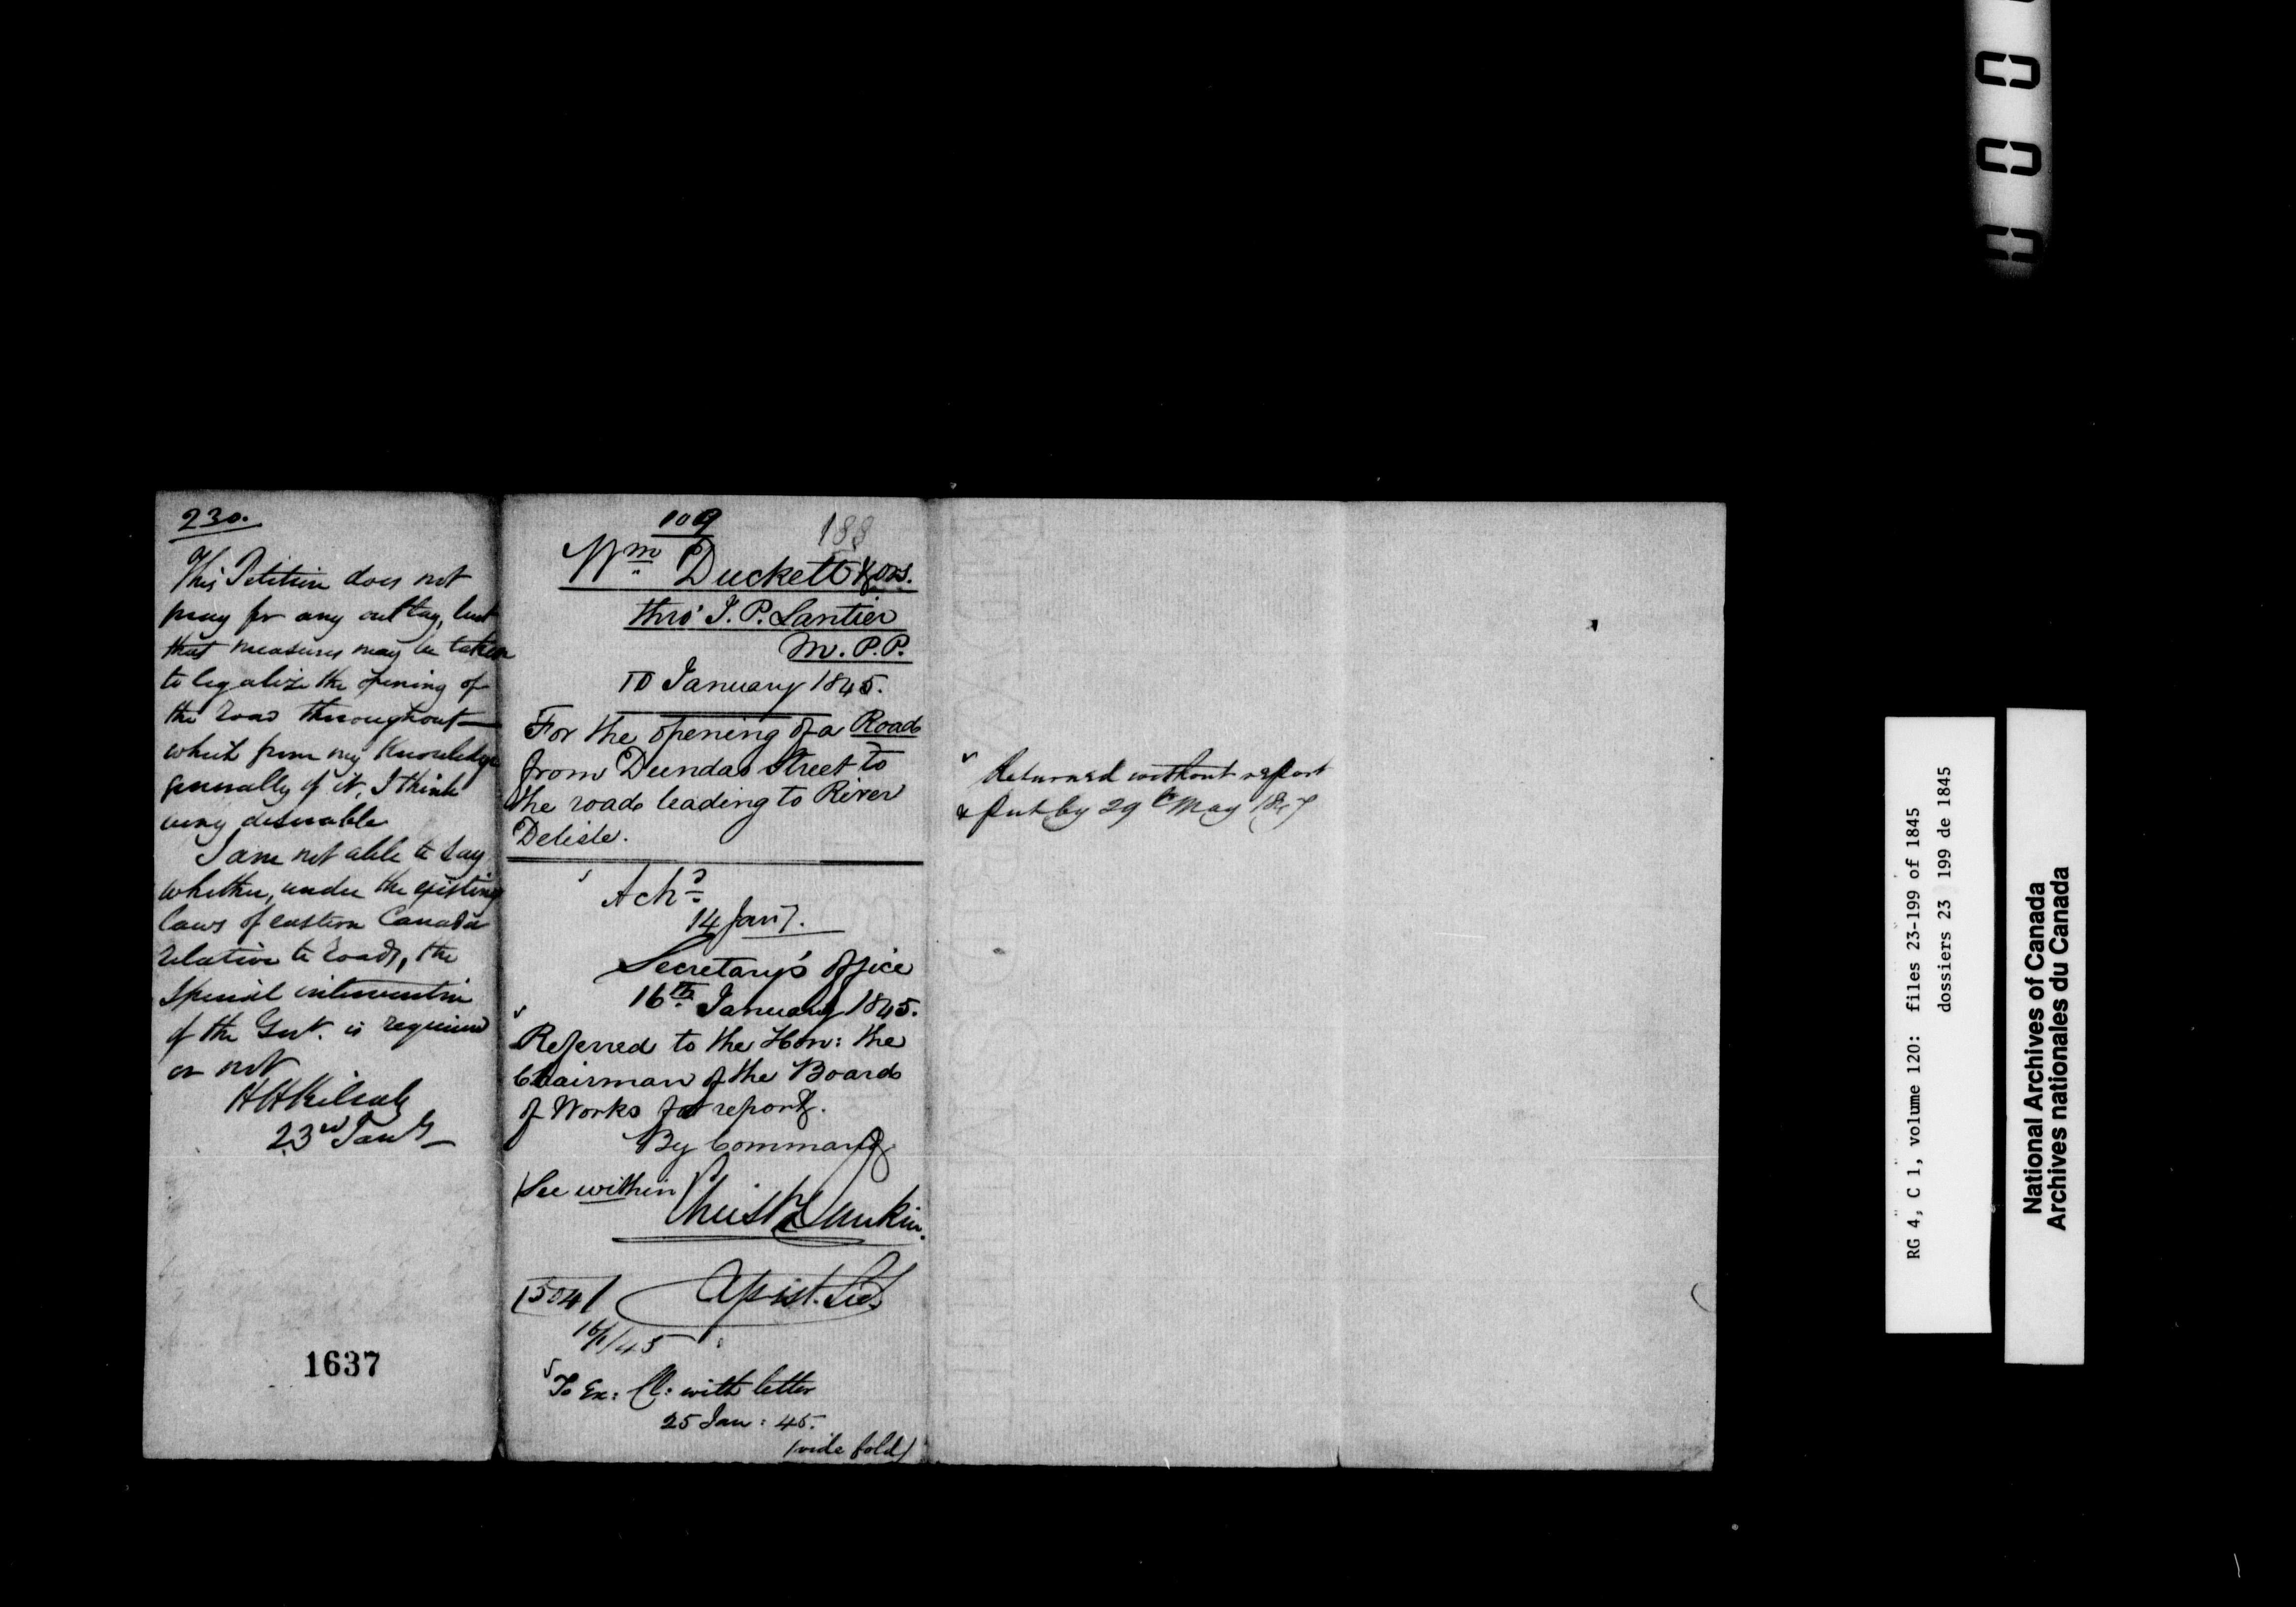 230.
This Petition does not
pray for any outlay, but
that measures may be taken
to legalize the opening of
the road throughout—
which from my knowledge
generally of it, I think
very desirable
I am not able to say
whether, under the existing
laws of eastern Canada
relative to roads, the
special intervention
of the Govt. is required
or not
HHKillaly
23rd Jany
1637
109
188
Wm Duckett & ors.
thro' J. P. Lantier
M. P. P.
10 January 1845.
For the opening of a Road
from Dundas Street to
the road leading to River
Delisle.
Ackd
14 Jany.
Secretary's Office
16th January 1845.
Referred to the Hon: the
Chairman of the Board
of Works for report.
By Command
(See within)
Christr Dunkin.
Assist. Secy
1504
16/1/45
To Ex: Cl: with letter
25 Jan: 45.
(vide fold)
Returned without report
& put by 29th May 1847
RG 4, C 1, volume 120: files 23-199 of 1845
dossiers 23 199 de 1845
National Archives of Canada
Archives nationales du Canada
0 0 0